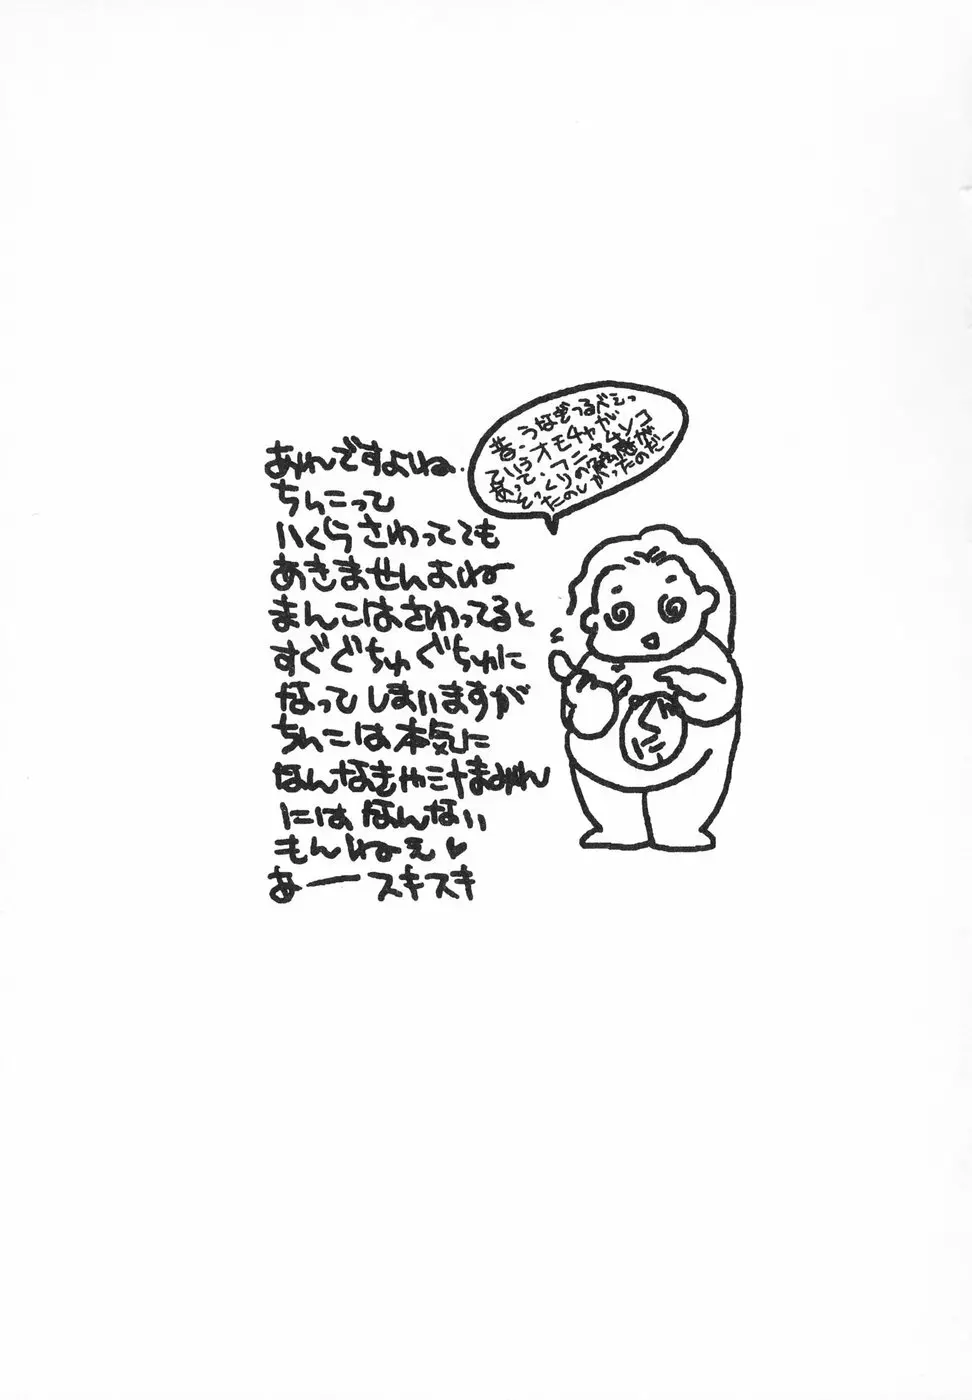 あれですよね..
ちんこって
いくらさわってても
あきませんよねー
まんこはさわってると
すぐぐちゅぐちゅに
なってしまいますが
ちんこは本気に
なんなきゃ汁まみれ
にはなんない
もんねぇ♥
あーースキスキ
昔、うなぞうるベシっ
ていうオモチャが
あって、フニャムンコ
そっくりの触感が
たのしかったのだー